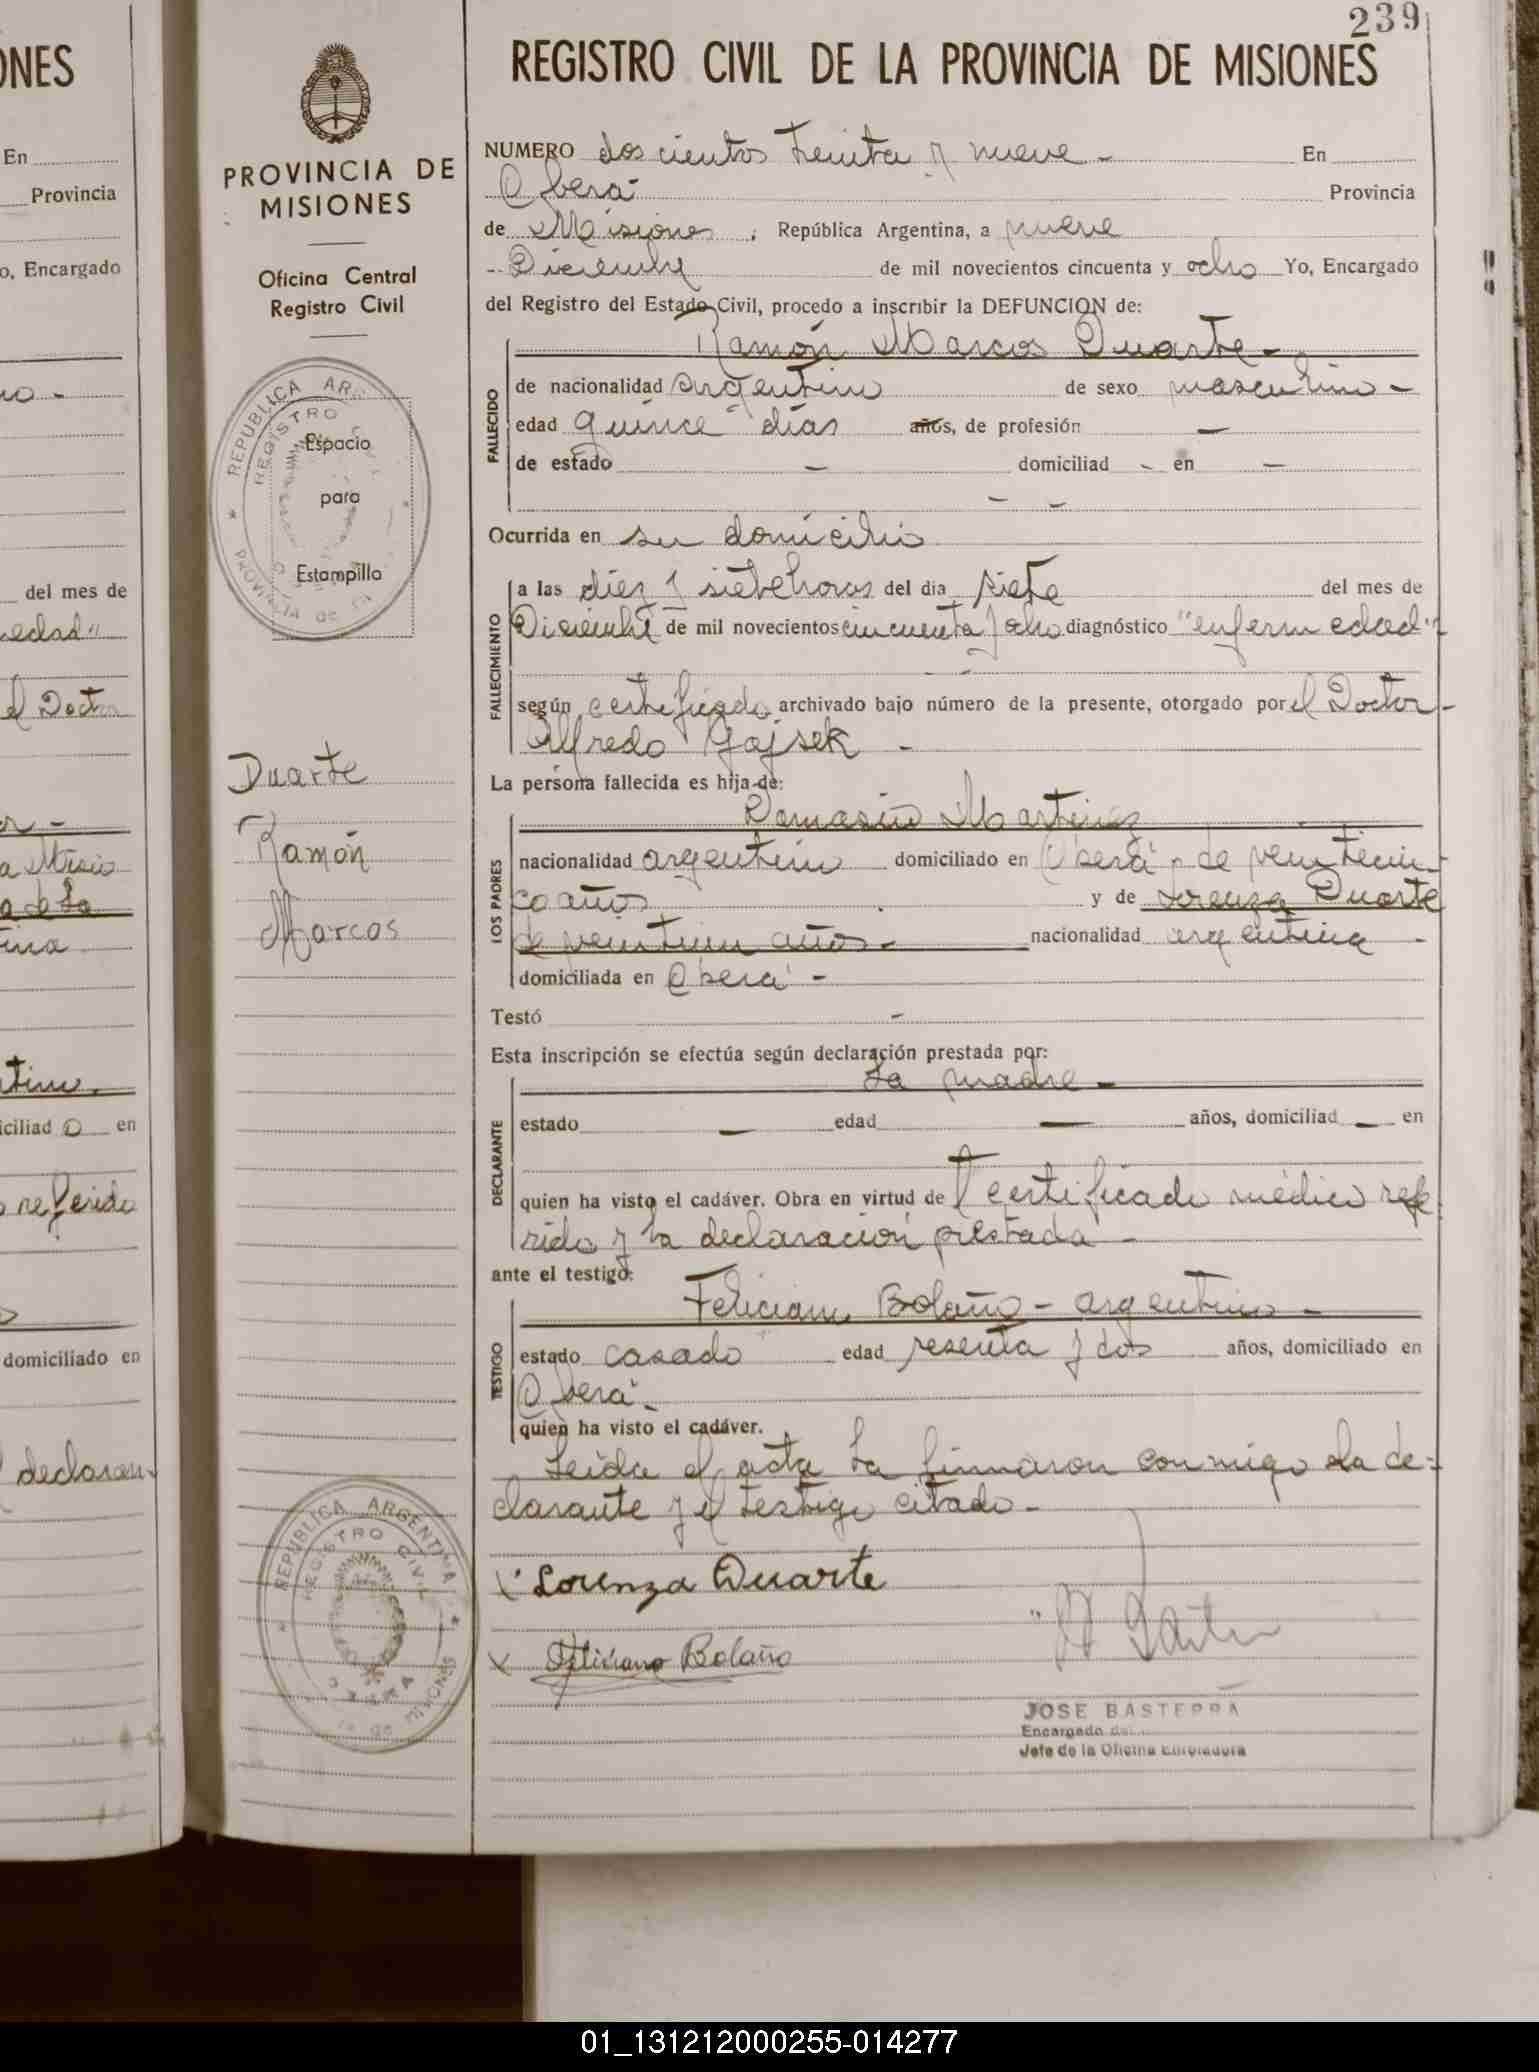 239
REGISTRO CIVIL DE LA PROVINCIA DE MISIONES
PROVINCIA DE
MISIONES
Oficina Central
Registro Civil
REPUBLICA AR
REGISTRO
Espacio
para
Estampilla
PROVINCIA DE
Duarte
Ramón
Marcos
REPUBLICA ARGENTINA
REGISTRO CIVIL
OBERA
MISIONES
NUMERO doscientos treinta y nueve - En
Oberá Provincia
de Misiones , República Argentina, a nueve
Diciembre de mil novecientos cincuenta y ocho Yo, Encargado
del Registro del Estado Civil, procedo a inscribir la DEFUNCION de:
Ramón Marcos Duarte -
FALLECIDO
de nacionalidad argentino de sexo masculino -
edad quince días años, de profesión —
de estado — domiciliad - en —
- -
Ocurrida en su domicilio
FALLECIMIENTO
a las diez y siete horas del dia siete del mes de
Diciembre de mil novecientos cincuenta y ocho diagnóstico "enfermedad"
según certificado archivado bajo número de la presente, otorgado por el Doctor
Alfredo Gajsek -
La persona fallecida es hija de:
LOS PADRES
Damasio Martinez
nacionalidad argentino domiciliado en Oberá, de veinticin
co años y de Lorenza Duarte
de veintiun años - nacionalidad argentina -
domiciliada en Oberá -
Testó -
Esta inscripción se efectúa según declaración prestada por:
DECLARANTE
La madre -
estado — edad — años, domiciliad — en
quien ha visto el cadáver. Obra en virtud del certificado médico refe
rido y la declaración prestada -
ante el testigo:
TESTIGO
Feliciano Bolaño - argentino -
estado casado edad sesenta y dos años, domiciliado en
Oberá -
quien ha visto el cadáver.
Leída el acta la firmaron conmigo la de-
clarante y el testigo citado -
Lorenza Duarte
Feliciano Bolaño
JOSE BASTERRA
Encargado del
Jefe de la Oficina
ONES
En
Provincia
o, Encargado
del mes de
edad"
el Doctor
tina
ciliad o en
referido
domiciliado en
declaran
01_131212000255-014277